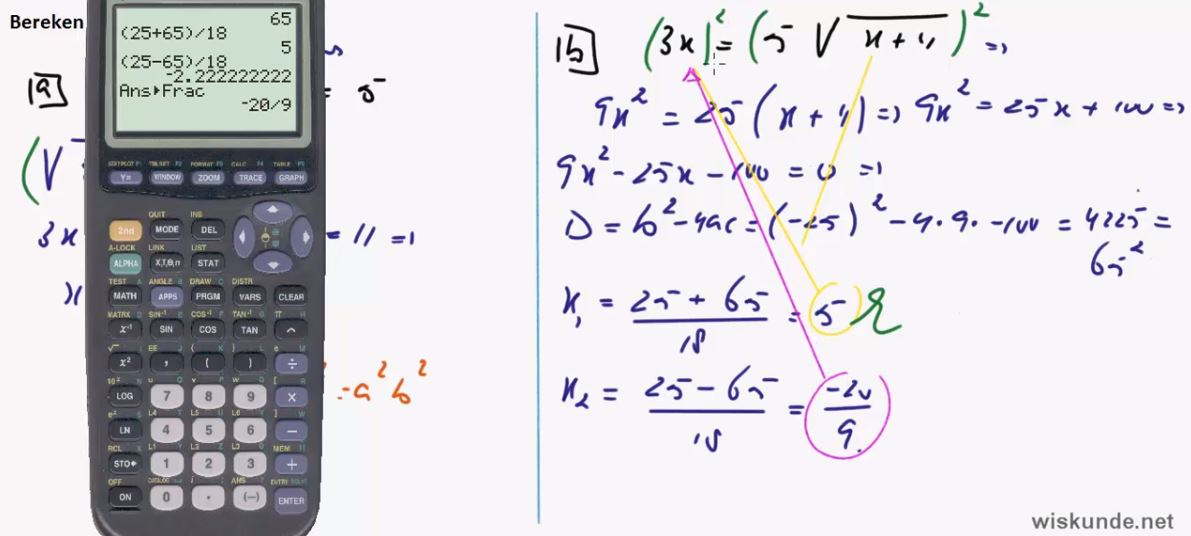 Bereken
65
(25+65)/18
5
(25-65)/18
-2.222222222
Ans▸Frac
-20/9
STATPLOT F1 TBLSET F2 FORMAT F3 CALC F4 TABLE F5
Y= WINDOW ZOOM TRACE GRAPH
QUIT INS
2nd MODE DEL
A-LOCK LINK LIST
ALPHA X,T,θ,n STAT
TEST A ANGLE B DRAW C DISTR
MATH APPS PRGM VARS CLEAR
MATRX D SIN⁻¹ E COS⁻¹ F TAN⁻¹ G π H
x⁻¹ SIN COS TAN ^
√ I EE J { K } L e M
x² , ( ) ÷
10ˣ N u O v P w Q [ R
LOG 7 8 9 X
eˣ S L4 T L5 U L6 V ] W
LN 4 5 6 −
RCL X L1 Y L2 Z L3 θ MEM "
STO▸ 1 2 3 +
OFF CATALOG i : ANS ? ENTRY SOLVE
ON 0 . (−) ENTER
1a = 5
(√
3x = 11 =>
x
= a² b²
1b (3x)² = (5 √x+4)² =>
9x² = 25(x+4) => 9x² = 25x + 100 =>
9x² - 25x - 100 = 0 =>
D = b² - 4ac = (-25)² - 4·9·-100 = 4225 =
65²
x₁ = 25 + 65 / 18 = 5
x₂ = 25 - 65 / 18 = -20 / 9
wiskunde.net